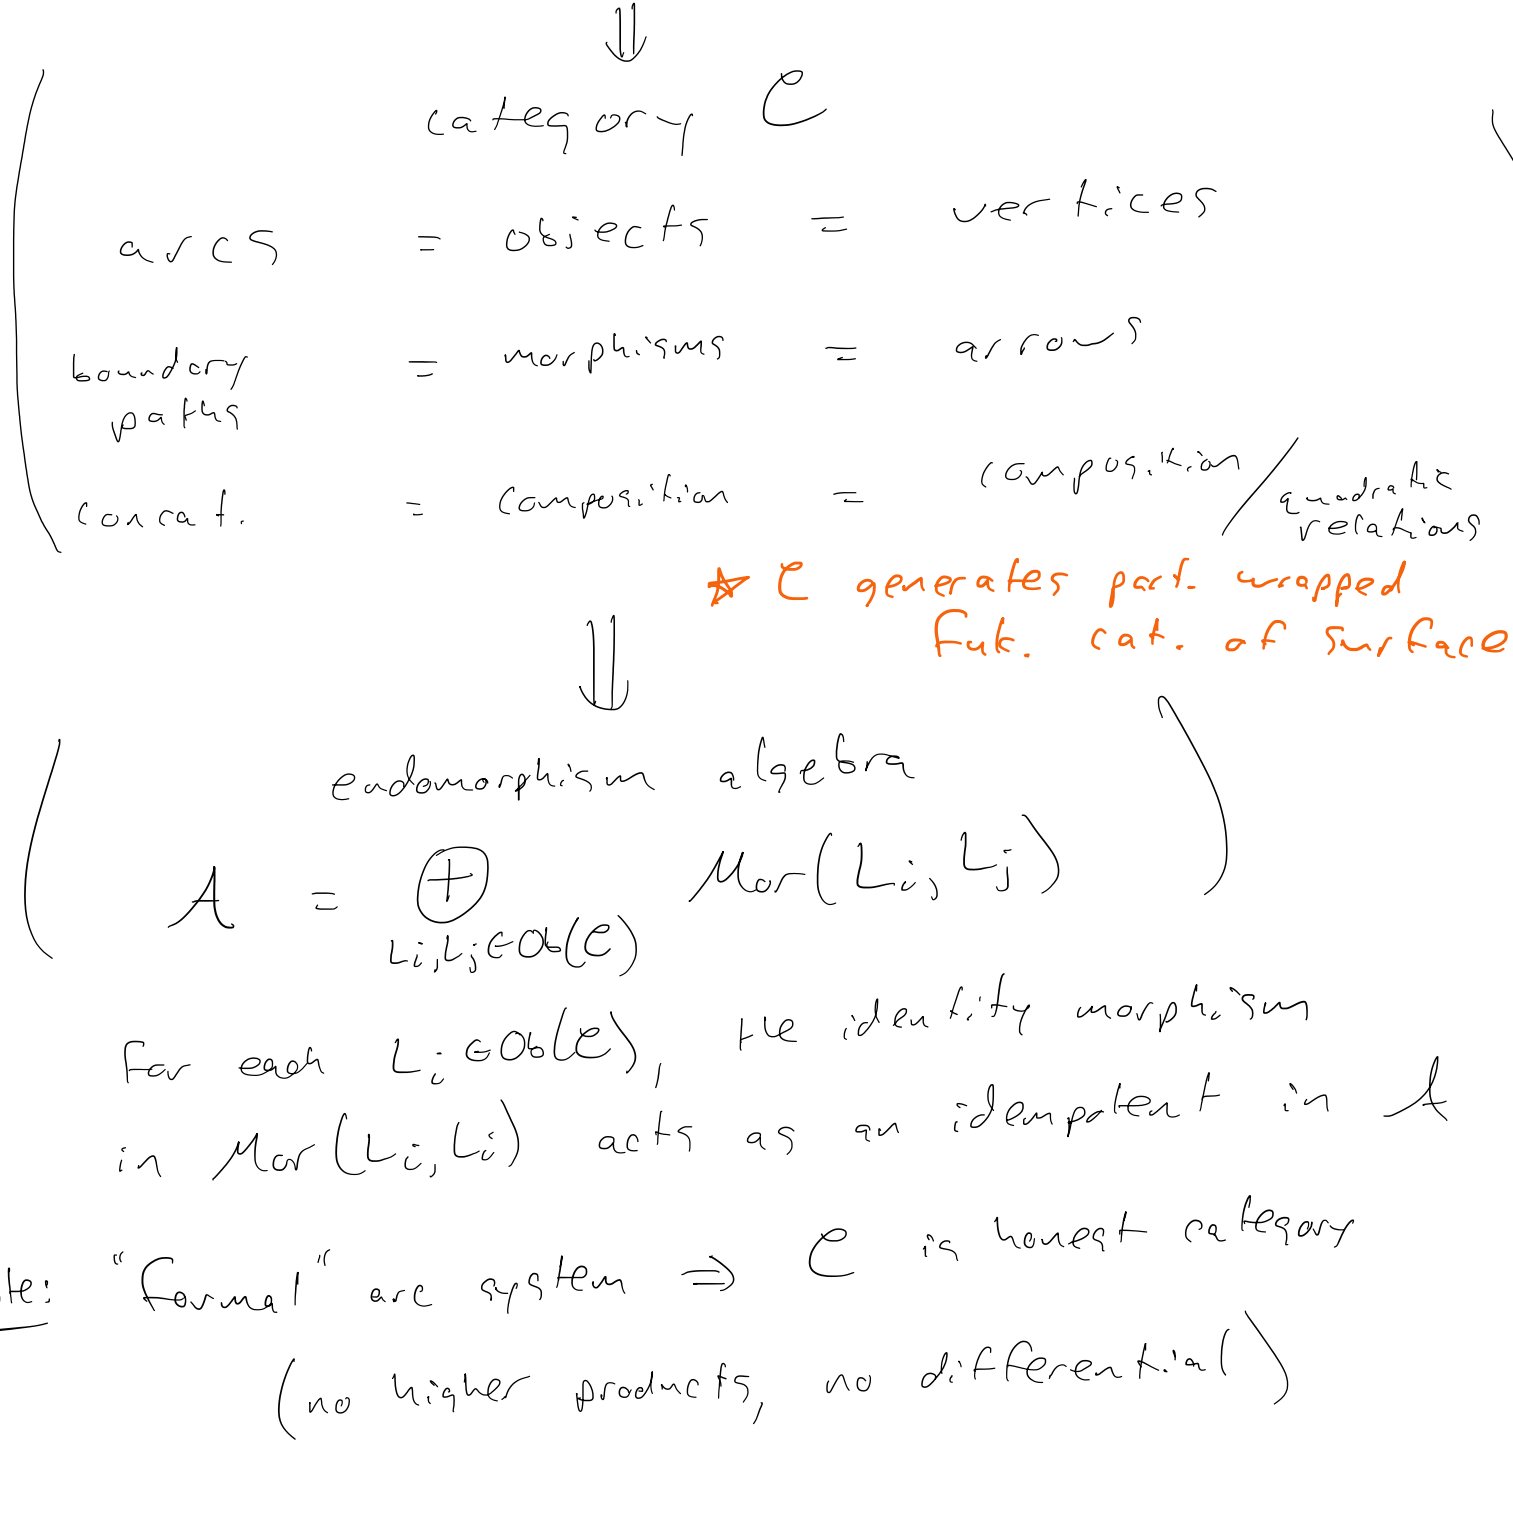 ⇓
category C
arcs = objects = vertices
boundary paths = morphisms = arrows
concat. = composition = composition / quadratic relations
☆ C generates part. wrapped
Fuk. cat. of surface
⇓
endomorphism algebra
A = ⊕ Mor(Li, Lj)
Li, Lj ∈ Ob(C)
For each Li ∈ Ob(C), the identity morphism
in Mor(Li, Li) acts as an idempotent in A
te: "formal" arc system ⇒ C is honest category
(no higher products, no differential)